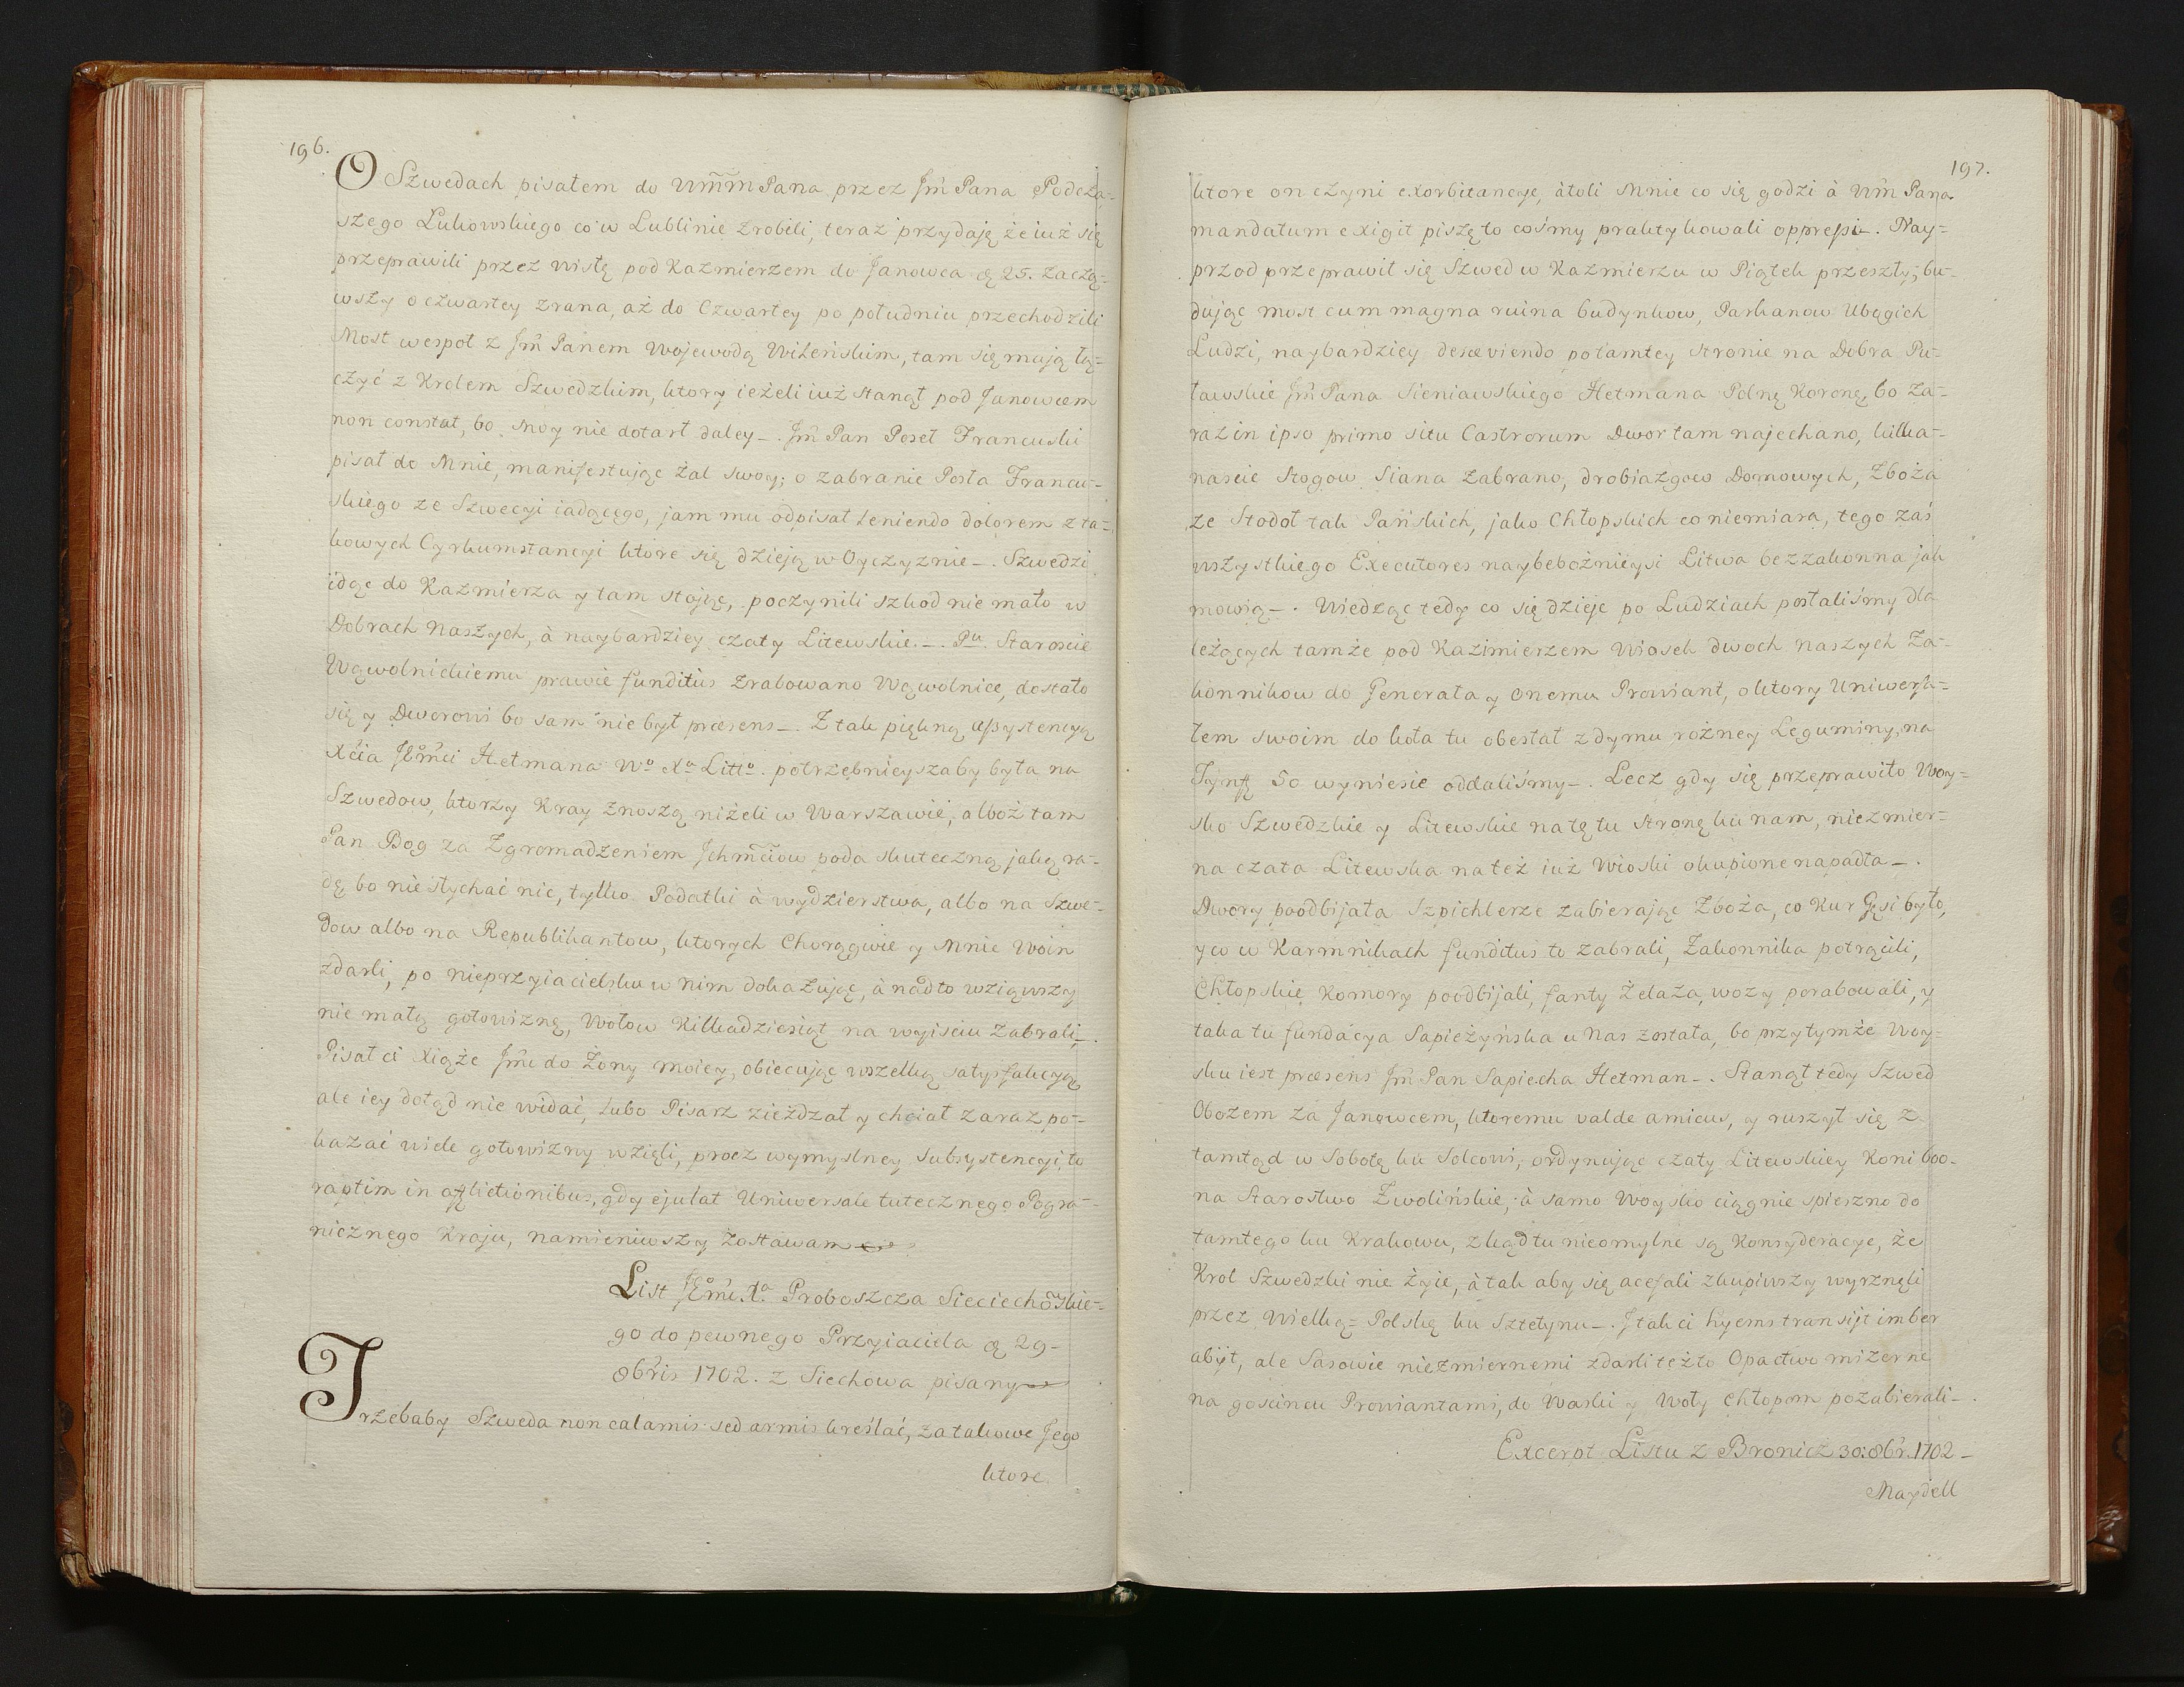 196.
O Szwedach pisałem do Wm̃m̃ Pana przez Jm̃ Pana Podcza-
szego Łukowskiego co w Lublinie zrobili, teraz przydaję że iuż się
przeprawili przez Wisłę pod Kazmierzem do Janowca ą 25. zaczą-
wszy o czwartey zrana, aż do Czwartey po południu przechodzili
Most wespoł z Jm̃ Panem Wojewodą Wileńskim, tam się mają łą-
czyć z Krolem Szwedzkim, ktory ieżeli iuż stanął pod Janowcem
non constat, bo moy nie dotarł daley_. Jm̃ Pan Poseł Francuski
pisał do Mnie, manifestując żal swoy; o zabranie Posła Francu-
skiego ze Szwecyi iadącego, jam mu odpisał leniendo dolorem z ta-
kowych Cyrkumstancyi ktore się dzieją w Oyczyznie_. Szwedzi
idąc do Kazmierza y tam stojąc, poczynili szkod nie mało w
Dobrach Naszych, à naybardziey czaty Litewskie._. Pu. Staroscie
Wąwolnickiemu prawie funditùs zrabowano Wąwolnice, dostało
się y Dworowi bo sam nie był præsens_. Z tak piękną assystencyą
Xcia Jeo̊m̃ci Hetmana Wo Xa Litto. potrzebnieysza by była na
Szwedow, ktorzy Kray znoszą niżeli w Warszawie, alboż tam
Pan Bog za Zgromadzeniem Jchm̃ciow poda skuteczną jaką ra-
dę bo nie słychać nic, tylko Podatki à wydzierstwa, albo na Szwe-
dow albo na Republikantow, ktorych Chorągwie y Mnie Woin
zdarli, po nieprzyiacielsku w nim dokazując, à nadto wziąwszy
nie małą gotowiznę, Wołow Kilkadziesiąt na wyiściu zabrali_.
Pisał ci Xiąże Jm̃ do Żony moiey, obiecując wszelką satysfakcyą
ale iey dotąd nie widać, lubo Pisarz zieżdzał y chciał zaraz po-
kazać wiele gotowizny wzieli, procz wymyslney subsystencyi, to
raptim in afflictionibus, gdy ejulat Uniwersale tutecznego Pogra-
nicznego Kraju, namieniwszy zostawam
List Jeo̊m̃. Xa Proboszcza Sieciechōskie-
go do pewnego Przyiaciela ą 29-
8bris 1702. z Siechowa pisany
Trzebaby Szweda non calamis sed armis kreślać, za takowe Jego
ktore
197.
ktore on czyni exorbitancye, àtoli Mnie co się godzi à Wm̃ Pana
mandatum exigit piszę to cośmy praktykowali oppressi_. Nay-
przod przeprawił się Szwed w Kazmierzu w Piątek przeszły; bu-
dując most cum magna ruina budynkow, Parkanow Ubogich
Ludzi, naybardziey desæviendo po tamtey stronie na Dobra Pu-
ławskie Jm̃ Pana Sieniawskiego Hetmana Polnego Korone, bo za-
raz in ipso primo situ Castrorum Dwor tam najechano, kilka-
nascie Stogow Siana zabrano, drobiazgow Domowych, Zboża
ze Stodoł tak Pańskich, jako Chłopskich co niemiara, tego zaś
wszystkiego Executores naybezbożnieysi Litwa bezzakonna jak
mowią_. Wiedząc tedy co się dzieje po Ludziach posłaliśmy dla
leżących tamże pod Kazimierzem Wiosek dwoch naszych Za-
konnikow do Generała y onemu Prowiant, o ktory Uniwersa-
łem swoim do koła tu obesłał z dymu rożney Leguminy, na
Tynff 50 wyniesie oddaliśmy_. Lecz gdy się przeprawiło Woy-
sko Szwedzkie y Litewskie na tę tu stronę ku nam, niezmier-
na czata Litewska na też iuż Wioski okupione napadła_.
Dwory poodbijała Szpichlerze zabierając Zboża, co Kur Gęsi było,
y co w Karmnikach funditus to zabrali, Zakonnika potrącili,
Chłopskie Komory poodbijali, fanty Żelaza, wozy porabowali, y
taka tu fundacya Sapieżyńska u Nas została, bo przy tymże Woy-
sku iest præsens Jm̃ Pan Sapiecha Hetman_. Stanął tedy Szwed
Obozem za Janowcem, ktoremu valde amicus, y ruszył się z
tamtąd w Sobotę ku Solcowi, ordynując czaty Litewskiey Koni 600.
na Starostwo Zwolińskie, à samo Woysko ciągnie spieszno do
tamtego ku Krakowu, zkąd tu nieomylne są Konsyderacye, że
Krol Szwedzki nie żyie, à tak aby się acefali zkupiwszy wyrznęli
przez Wielką-Polskę ku Sztetynu_. Jtak ci hyems transijt imber
abijt, ale Sasowie niezmiernemi zdarli też to Opactwo mizerne
na goscincu Prowiantami, do Waski y Woły Chłopom pozabierali_.
Excerpt Listu z Bronicz 30: 8br. 1702_
Maydell